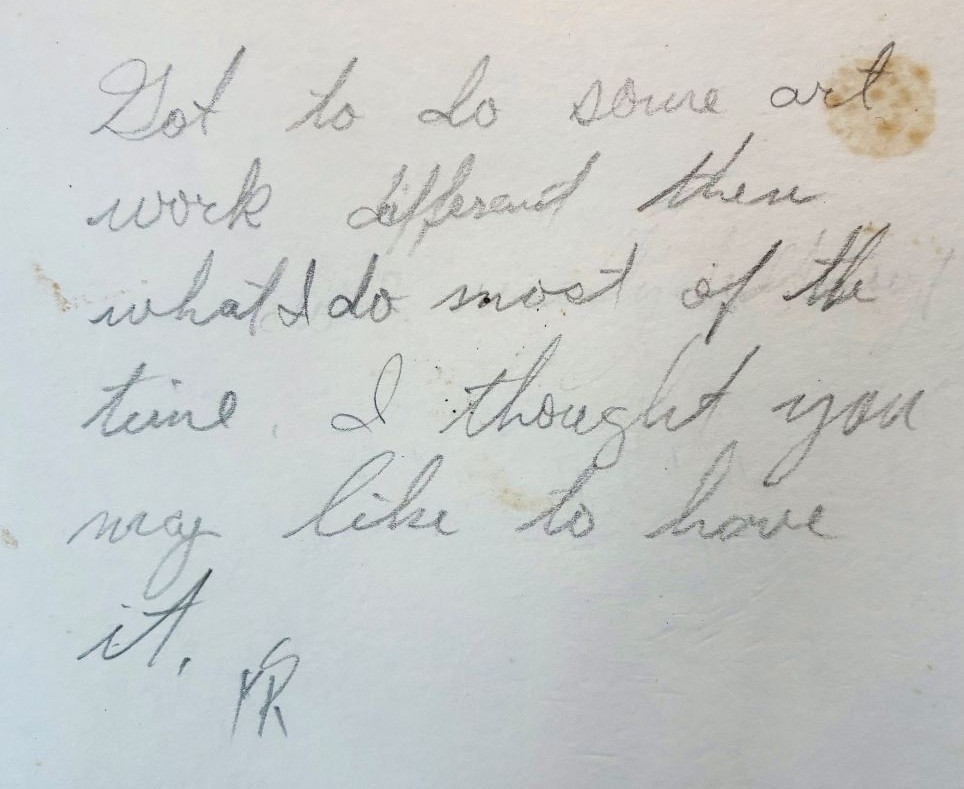 Got to do some art
work different then
what I do most of the
time. I thought you
may like to have
it.